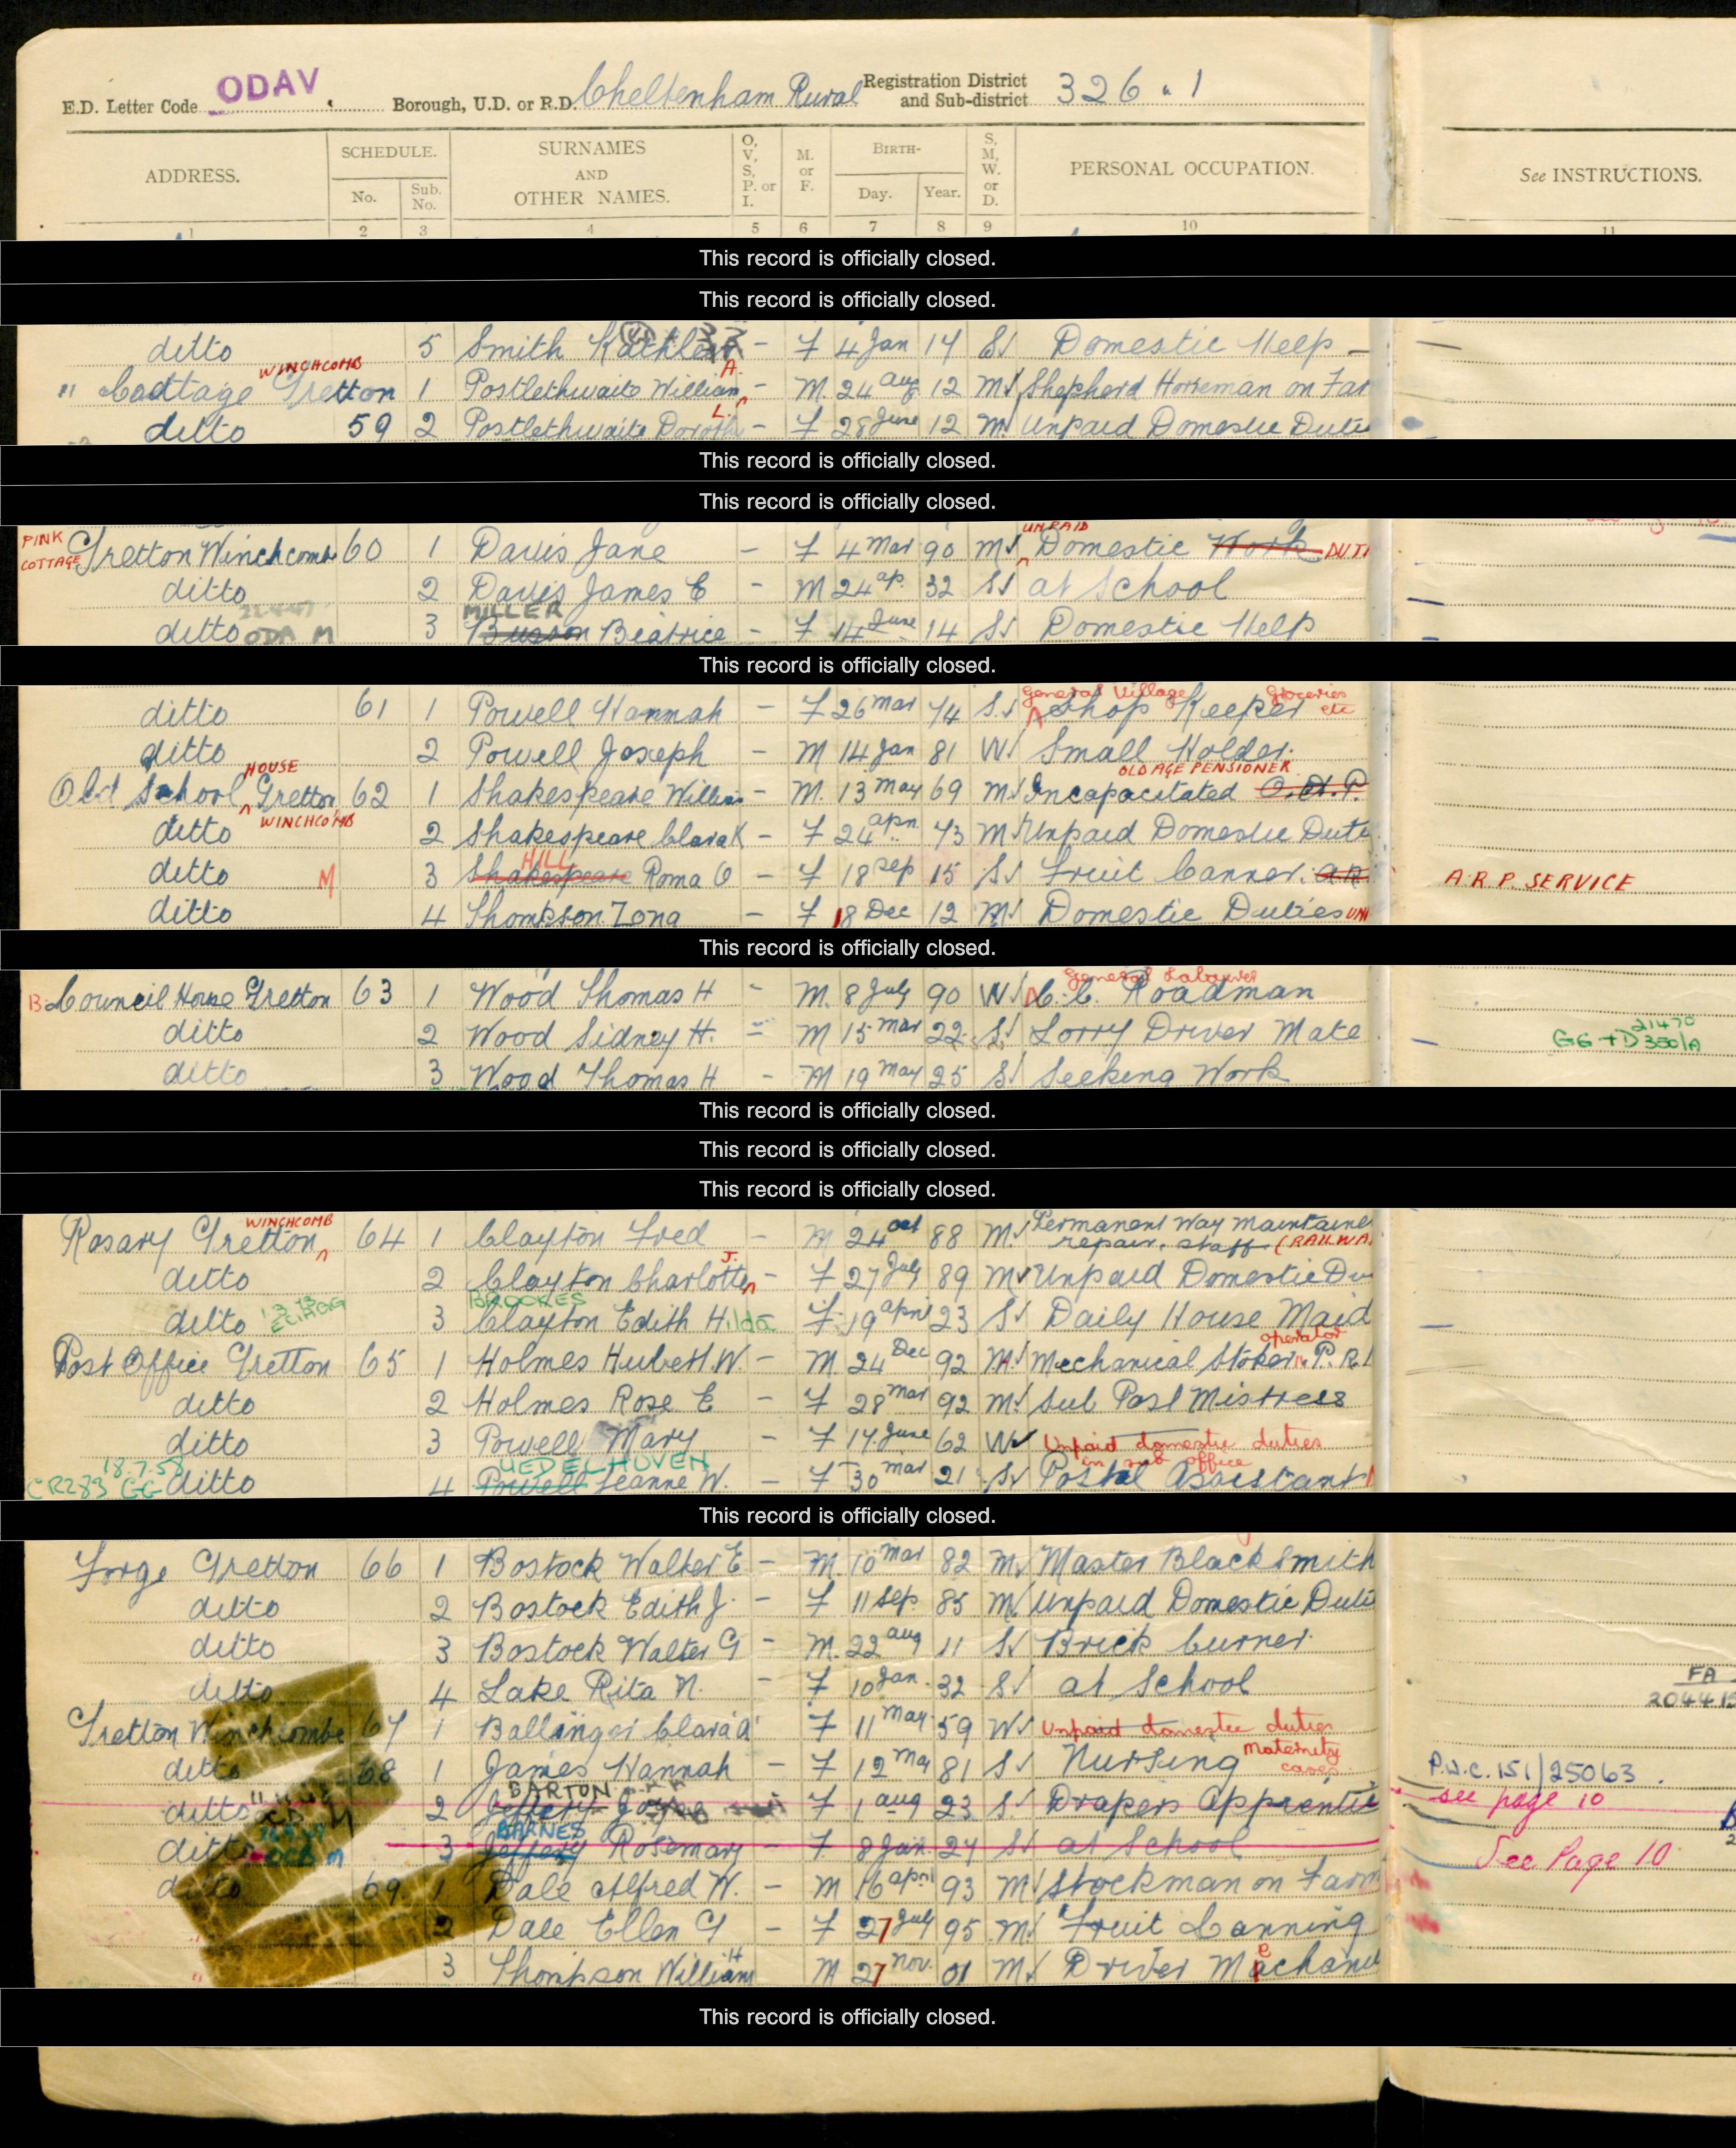 E.D. Letter Code ODAV Borough, U.D. or R.D. Cheltenham Rural Registration District and Sub-district 326.1
ADDRESS. SCHEDULE. No. Sub. No. SURNAMES AND OTHER NAMES. O, V, S, P. or I. M. or F. BIRTH- Day. Year. S, M, W. or D. PERSONAL OCCUPATION. See INSTRUCTIONS.
1 2 3 4 5 6 7 8 9 10 11
This record is officially closed.
This record is officially closed.
ditto 5 Smith Kathleen - F 4 Jan 14 S Domestic Help
WINCHCOMB A.
" Cadtage Gretton 1 Postlethwaite William - M. 24 Aug 12 M Shepherd Horseman on Far
L.
ditto 59 2 Postlethwaite Doroth - F 28 June 12 M Unpaid Domestic Dutie
This record is officially closed.
This record is officially closed.
PINK COTTAGE UNPAID
Gretton Winchcombe 60 1 Davis Jane - F 4 Mar 90 M Domestic Work DUTI
ditto 2 Davis James E - M 24 ap. 32 S at School
MILLER
ditto ODA M 3 Busson Beatrice - F 14 June 14 S Domestic Help
This record is officially closed.
General Village Groceries etc
ditto 61 1 Powell Hannah - F 26 Mar 74 S. Shop Keeper
ditto 2 Powell Joseph - M 14 Jan 81 W Small Holder.
HOUSE OLD AGE PENSIONER
Old School Gretton 62 1 Shakespeare William - M. 13 May 69 M Incapacitated O.A.P.
WINCHCOMB
ditto 2 Shakespeare Clara K - F 24 apn. 73 M Unpaid Domestic Dute
HILL
ditto M 3 Shakespeare Roma O - F 18 Sep 15 S Fruit Canner. A.R. A.R.P. SERVICE
ditto 4 Thompson Zona - F 18 Dec 12 M Domestic Duties UN
This record is officially closed.
General Labourer
B Council House Gretton 63 1 Wood Thomas H - M. 8 July 90 W C.C. Roadman
ditto 2 Wood Sidney H. - M 15 Mar 22 S. Lorry Driver Mate
ditto 3 Wood Thomas H - M 19 May 25 S Seeking Work
This record is officially closed.
This record is officially closed.
This record is officially closed.
WINCHCOMB
Rosary Gretton 64 1 Clayton Fred - M 24 Oct 88 M. Permanent Way Maintaine repair. staff (RAILWA
J.
ditto 2 Clayton Charlotte - F 27 July 89 M Unpaid Domestic Du
BROOKES
ditto 3 Clayton Edith Hilda F 19 april 23 S Daily House Maid
operator
Post Office Gretton 65 1 Holmes Hubert W. - M. 24 Dec 92 M. Mechanical Stoker P.R.
ditto 2 Holmes Rose E - F 28 Mar 92 M. Sub Post Mistress
ditto 3 Powell Mary - F 14 June 62 W Unpaid domestic duties
UEDELHOVEN in sub office
CR283 18.7.58 GG ditto 4 Powell Jeanne W. - F 30 Mar 21 S Postal Assistant
This record is officially closed.
Forge Gretton 66 1 Bostock Walter E - M. 10 Mar 82 M. Master Blacksmith
ditto 2 Bostock Edith J. - F 11 Sep. 85 M Unpaid Domestic Dutie
ditto 3 Bostock Walter G - M. 22 Aug 11 S Brick burner
ditto 4 Lake Rita N. - F 10 Jan. 32 S at School
FA
Gretton Winchcombe 67 1 Ballinger Clara A F 11 May 59 W Unpaid domestic duties
Maternity cases
ditto 68 1 James Hannah - F 12 May 81 S Nursing P.W.C. 151/25063.
BARTON
ditto 2 Jeffery F 1 Aug 23 S. Drapers Apprentice see page 10
BARNES
ditto 3 Jeffery Rosemary - F 8 Jan. 24 S at School See Page 10
ditto 69 1 Dale Alfred W. - M 16 april 93 M Stockman on Farm
2 Dale Ellen G - F 27 July 95 M. Fruit Canning
3 Thompson William H M 27 Nov. 01 M Driver Mechanic
This record is officially closed.